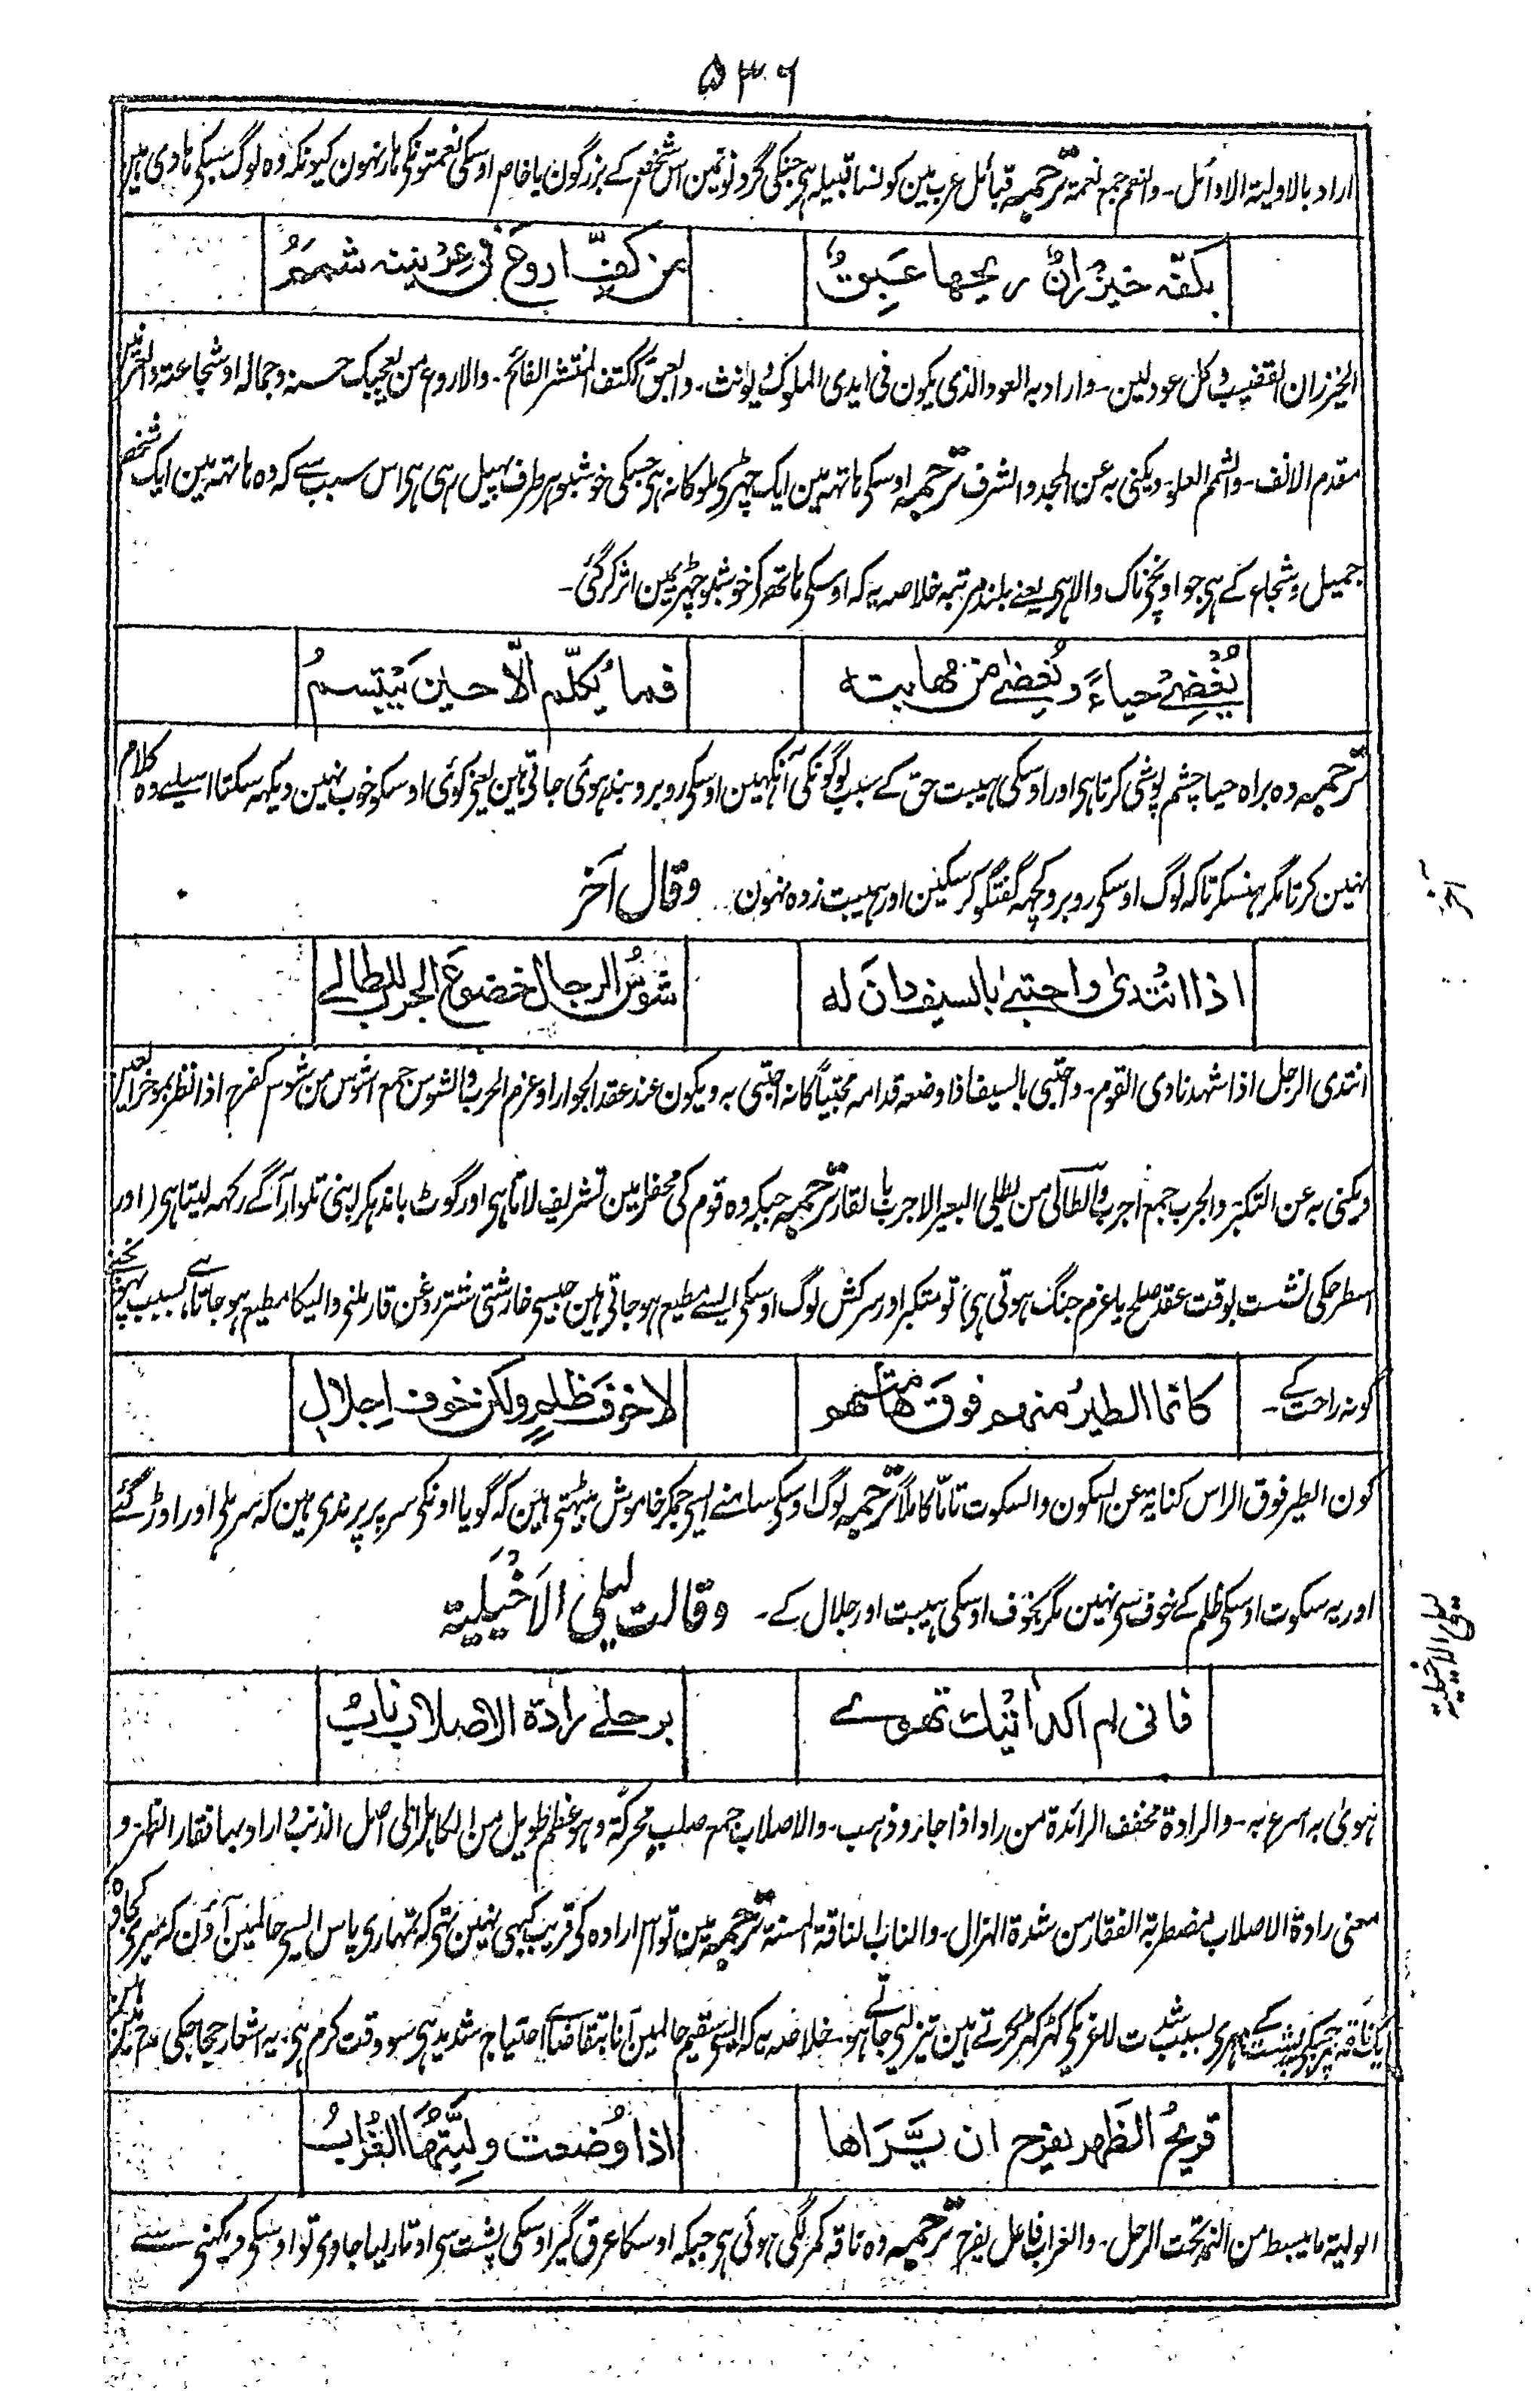 ۵۳۶
اراد بالاولیة الاوائل۔ والنعم جمع نعمة ترجمہ قبائل عرب مین کونسا قبیلہ ہی جنکی گردنونمین اس شخص کے بزرگون یا خاص اوسکی نعمتونکی ہار نہون کیونکہ وہ لوگ سبکی ہادی ہین
بكفّه خیزرانٌ ریحها عَبِقٌ من كفّ اروعَ فی عِرْنینه شممُ
الخیزران القضیب وکل عود لین۔ واراد به العود الذی یکون فی ایدی الملوک ویونث۔ والعبق ککتف المنتشر الفائح۔ والاروع من یعجبک حسنه وجماله او شجاعته والعرنین
مقدم الانف۔ والشمم العلو۔ ویکنی به عن المجد والشرف ترجمہ اوسکی ہاتھ مین ایک چھڑی ملوکانہ ہی جسکی خوشبو ہر طرف پھیل رہی ہی اس سبب سے کہ وہ ہاتھ مین ایک شخص
جمیل وشجاع کے ہی جو اونچی ناک والا ہی یعنے بلند مرتبہ خلاصہ یہ کہ اوسکی ہاتھ کی خوشبو چھڑیمین اثر کر گئی۔
یُغْضِی حیاءً ویُغضیٰ من مهابته فما یُکلَّم الّا حین یَبتسمُ
ترجمہ وہ براہ حیا چشم پوشی کرتا ہی اور اوسکی ہیبت حق کے سبب لوگونکی آنکھین اوسکی روبرو بند ہوئی جاتی ہین یعنی کوئی اوسکو خوب نہین دیکھ سکتا اسلیے وہ کلام
نہین کرتا مگر ہنسکر تاکہ لوگ اوسکی روبرو کچھ گفتگو کر سکین اور ہیبت زدہ نہون۔ وقال آخَر
آخر
اذا انتدیٰ واحتبیٰ بالسیف دانَ له شُوسُ الرجال خضوعَ الجربِ للطالی
انتدی الرجل اذا شهد نادی القوم۔ واحتبی بالسیف اذا وضعه قدامه محتبیاً کانه احتبی به ویکون عند عقد الجوار او عزم الحرب والشوس جمع اشوس من شوس کفرح اذا نظر بموخر العین
ویکنی به عن التکبر والجرب جمع اجرب والطالی من یطلی البعیر الاجرب بالقار ترجمہ جبکہ وہ قوم کی محفل مین تشریف لاتا ہی اور گوٹ باندھکر اپنی تلوار آگے رکھ لیتا ہی (اور
اسطرحکی نشست بوقت عقد صلح یا عزم جنگ ہوتی ہی) تو متکبر اور سرکش لوگ اوسکی ایسے مطیع ہو جاتی ہین جیسی خارشتی شتر روغن قار ملنی والیکا مطیع ہو جاتا ہے بسبب پہونچنے
گونہ راحت کے۔ کانّما الطیرُ منهم فوقَ هامتهم لا خوفَ ظلمٍ ولکن خوفَ اِجلالِ
کون الطیر فوق الراس کنایة عن السکون والسکوت تامّاً کاملاً ترجمہ لوگ اوسکی سامنے ایسی جمکر خاموش بیٹھتی ہین کہ گویا اونکی سر پر پرندی ہین کہ سر ہلی اور اوڑ گئے
اور یہ سکوت اوسکی ظلم کے خوف سی نہین مگر بخوف اوسکی ہیبت اور جلال کے۔ وقالت لیلی الاَخْیَلِیة
لیلی الاخیلیة
فانی لم اکد اٰتیک تهوی برحلی رادة الاصلاب نابُ
هوی به اسرع به۔ والرادة مخفف الرائدة من راد اذا جاز وذهب۔ والاصلاب جمع صلب محرکة وهو عظم طویل من الکاهل الی اصل الذنب واراد بها فقار الظهر و
معنی رادة الاصلاب مضطربة الفقار من شدة الهزال۔ والناب الناقة المسنة ترجمہ مین تو اس ارادہ کی قریب کبھی نہین تھی کہ تمہاری پاس ایسی حالمین آؤن کہ میری کجاوہ کو
ایک ناقہ جسکی پشت کے مہری بسبب شدت لاغریکی کھڑ کھڑ کرتے ہین تیز لئی جاتے ہو۔ خلاصہ یہ کہ ایسی سقیم حالمین آنا بتقاضائے احتیاج شدید ہی سو وقت کرم ہی۔ یہ اشعار حجاجکی مدح مین ہین
قریحُ الظهر یفرح ان یَّرَاها اذا وُضعت ولِیَّتُها الغُرابُ
الولیة ما یبسط من النمد تحت الرحل۔ والغراب فاعل یفرح ترجمہ وہ ناقہ کمر لگی ہوئی ہی جبکہ اوسکا عرق گیر اوسکی پشت سی اوتار لیا جاوی تو اوسکی دیکھنی سے